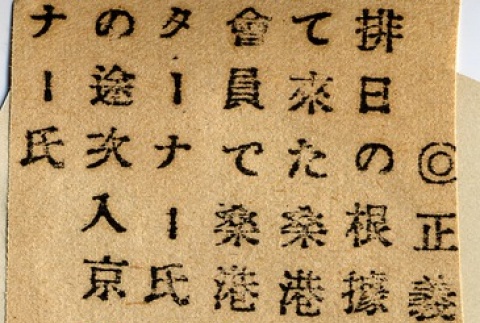 ◎正義
排日の根據
て來た桑港
會員で桑港
ターナー氏
の途次入京
ナー氏